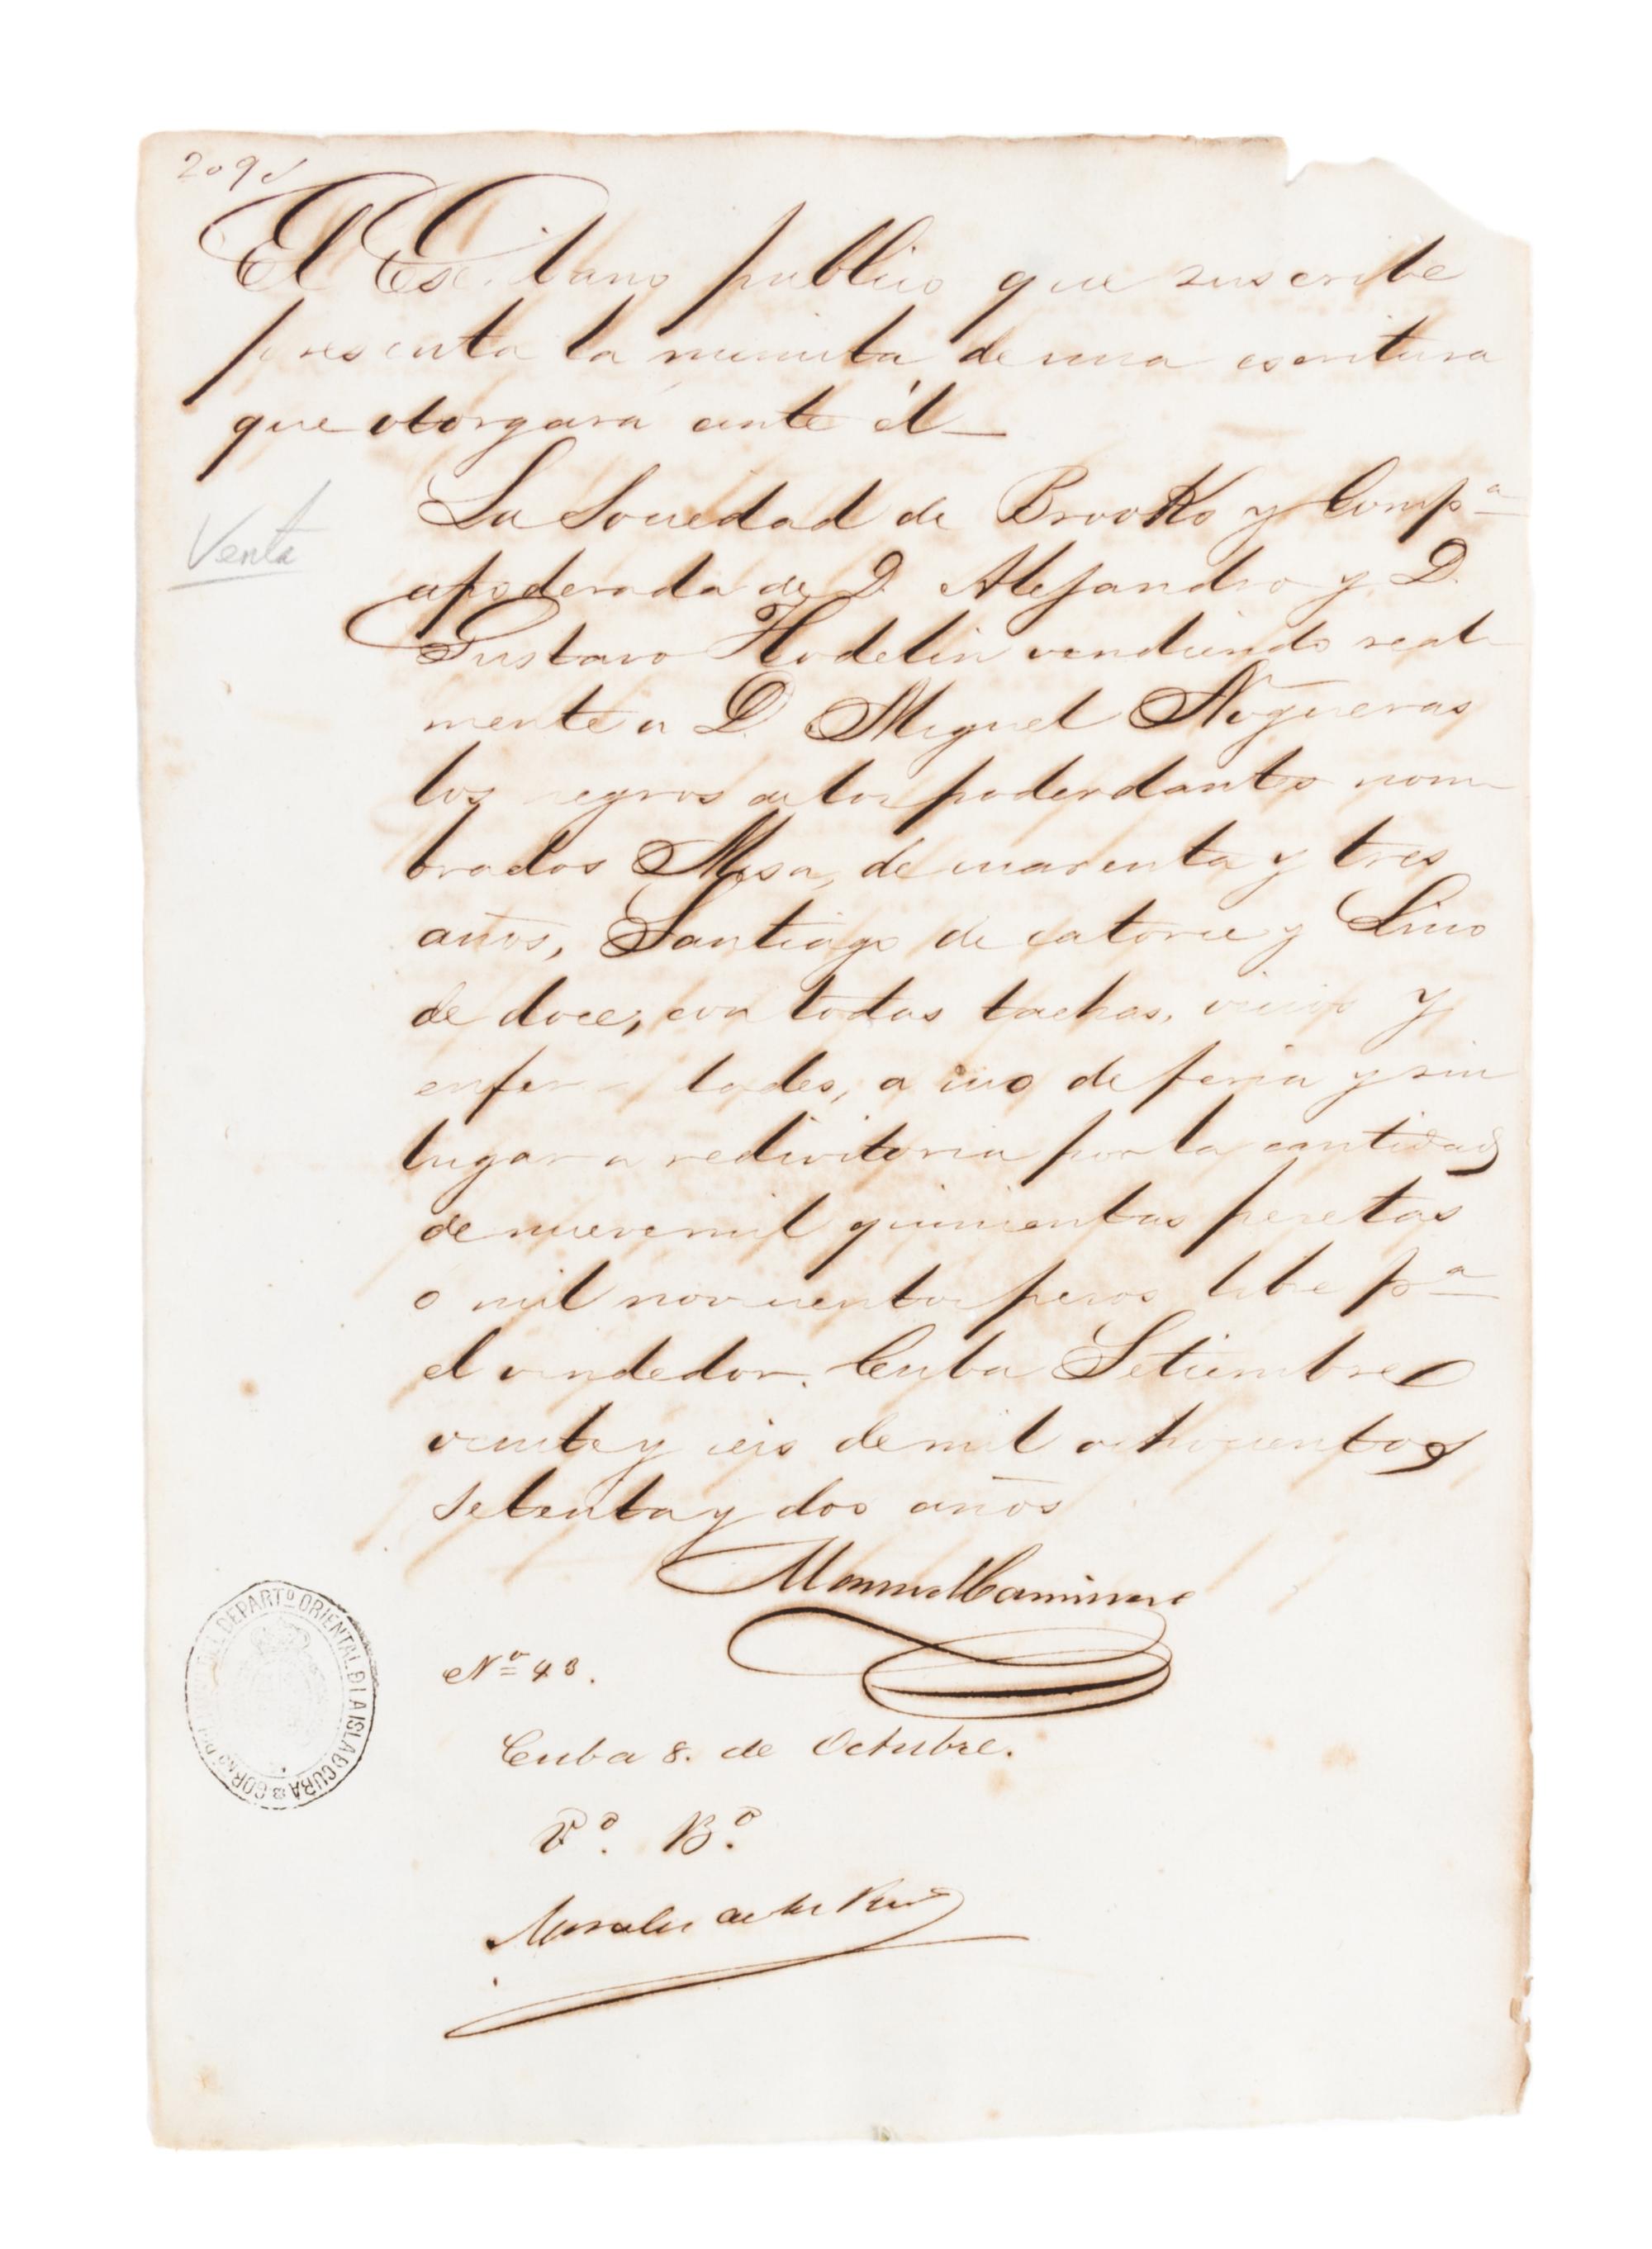 209
El Escribano publico que suscribe
presenta la minuta de una escritura
que otorgará ante él
Venta
La Sociedad de Brooks y Comp.ª
apoderada de D. Alejandro y D.
Gustavo Hodelin vendiendo real-
mente a D. Miguel Nogueras
los negros de los poderdantes nom-
brados de cuarenta y tres
años, Santiago de catorce y Lino
de doce, con todas tachas, vicios y
enfermedades, a uso de feria y sin
lugar a redivitoria por la cantidad
de nueve mil quinientas pesetas
o mil novecientos pesos libe p.ª
el vendedor. Cuba Setiembre
veinte y seis de mil ochocientos
setenta y dos años
Manuel Caminero
Nº 43.
Cuba 8. de Octubre.
Vº. Bº.
Morales de los Rios
DEPARTº ORIENTAL D LA ISLA D CUBA